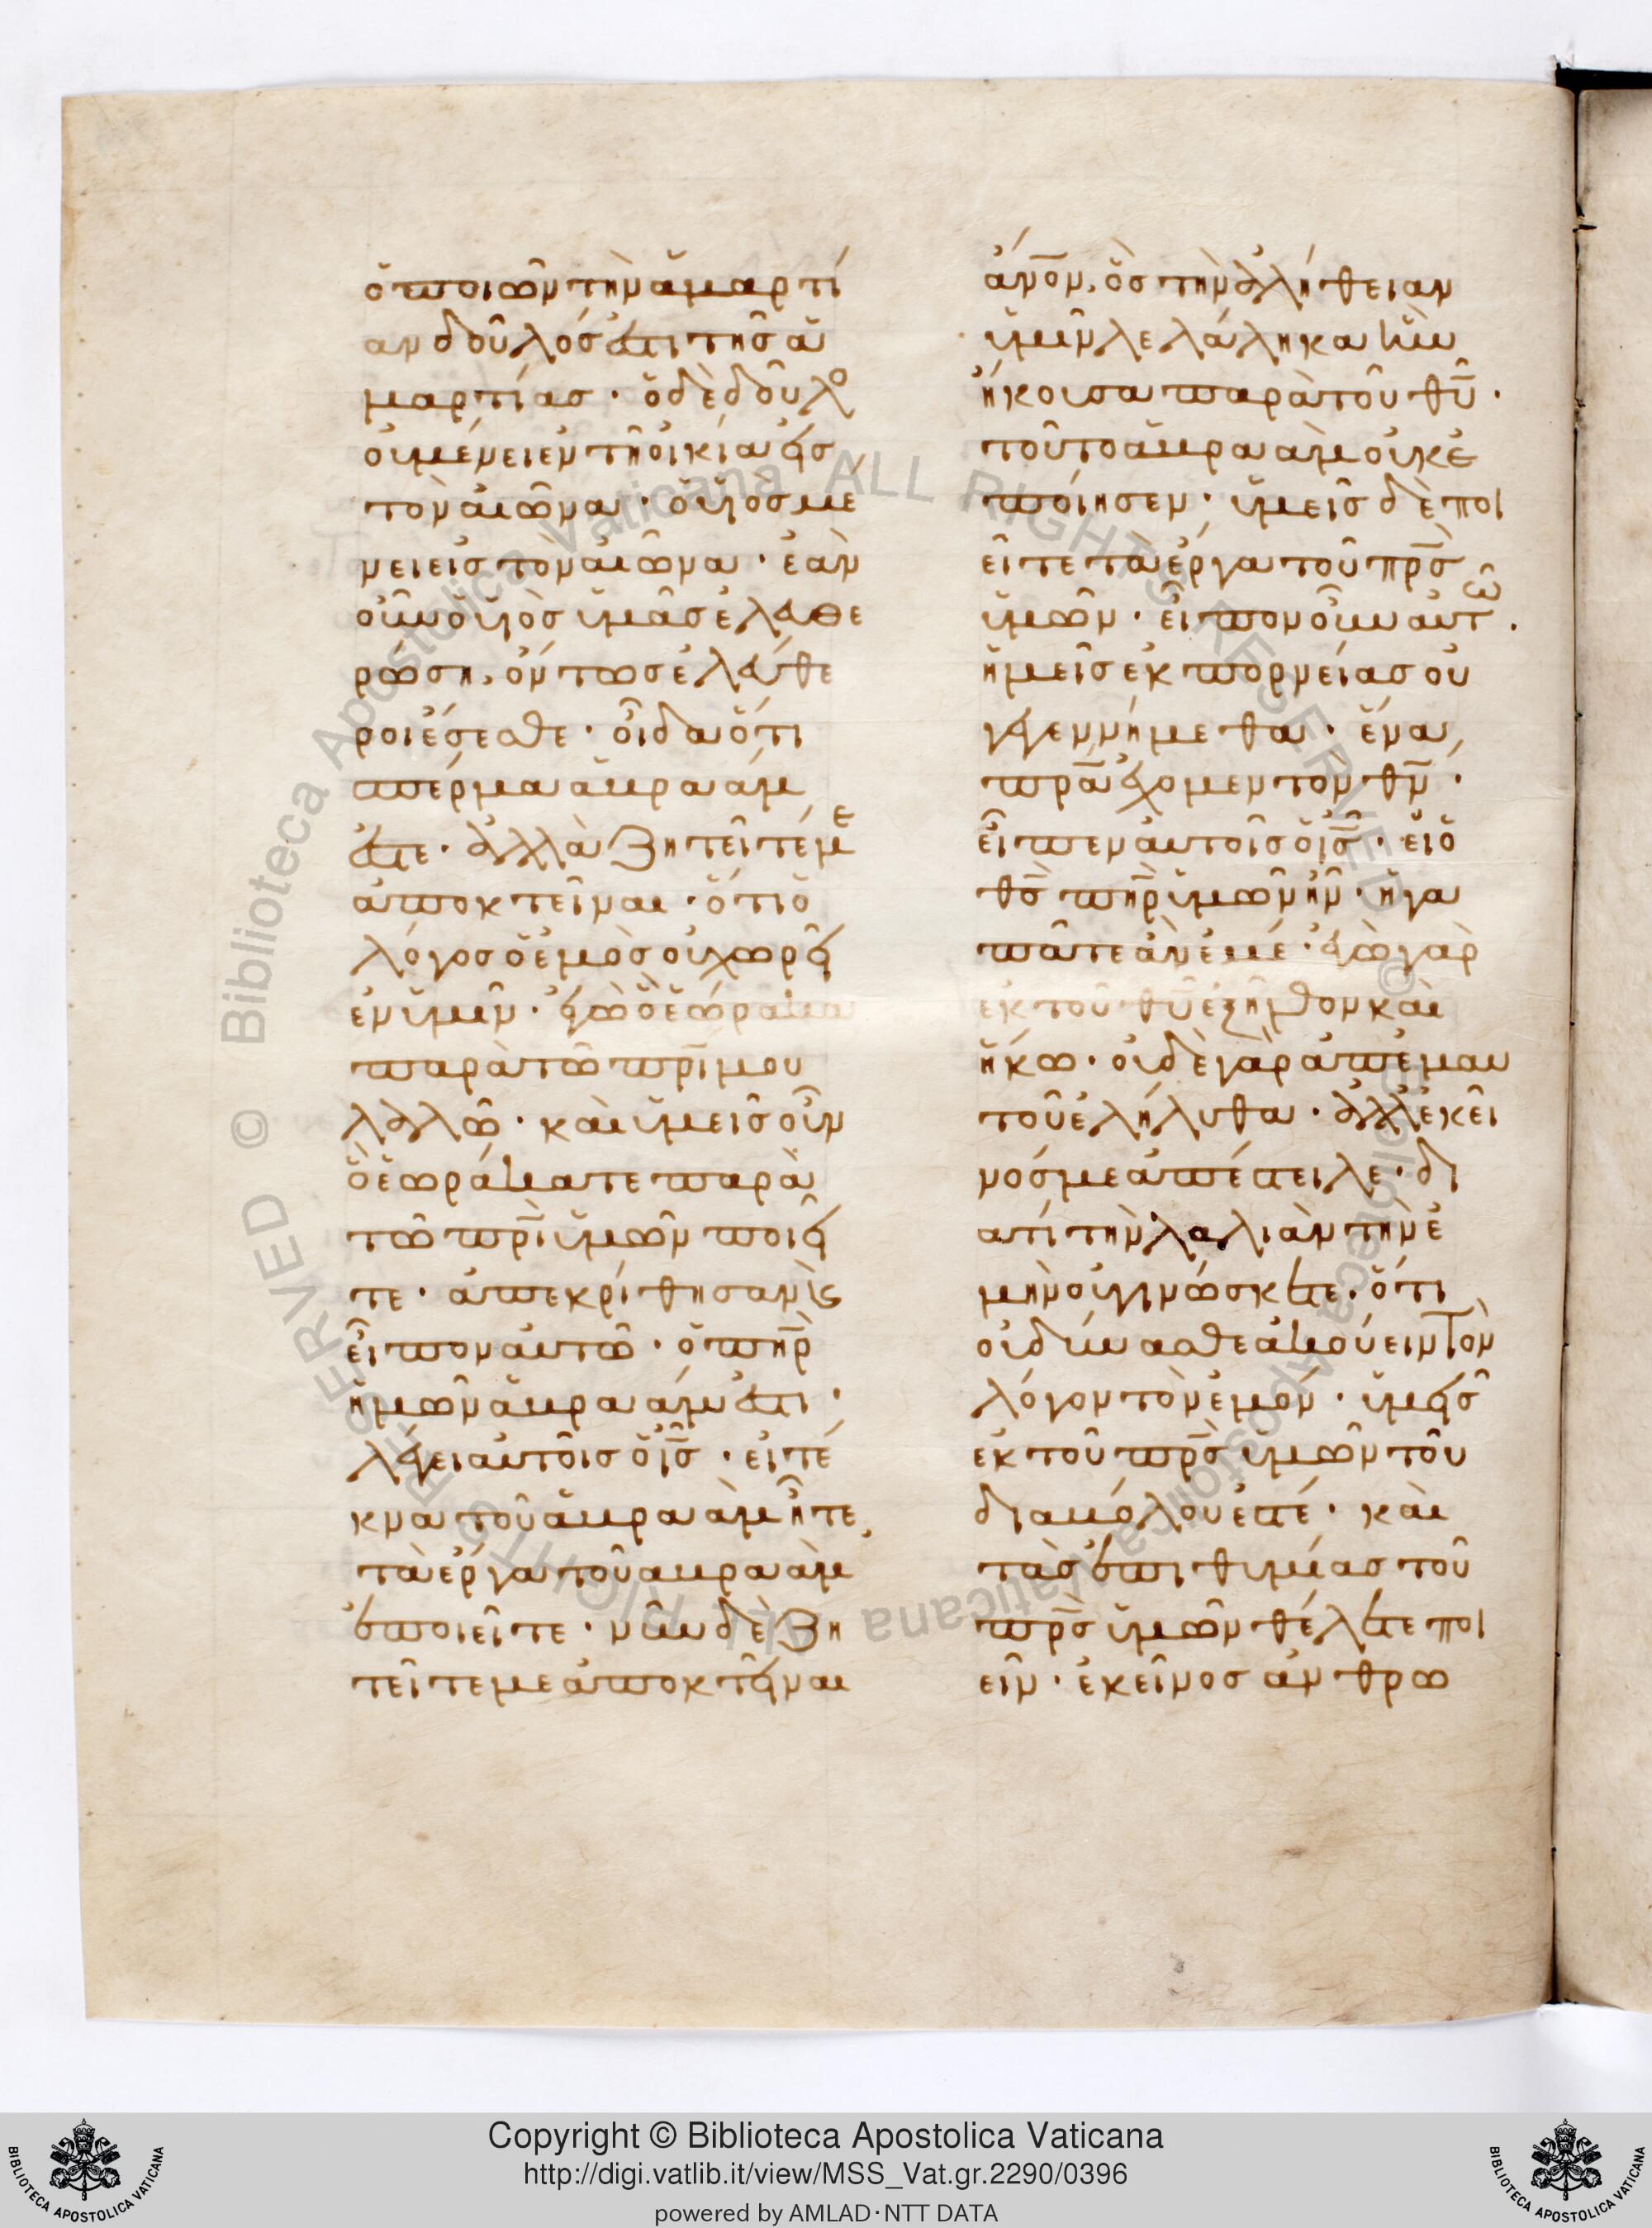 ὁ ποιῶν τὴν ἁμαρτί
αν δοῦλός ἐστι τῆς ἁ
μαρτίας · ὁ δὲ δοῦλο
οὐ μένει ἐν τῆ οἰκία εἰς
τὸν αἰῶνα · ὁ υἱὸς με
νει εἰς τὸν αἰῶνα · ἐὰν
οὖν ὁ υἱὸς ὑμᾶς ἐλευθε
ρώση, ὄντως ἐλεύθε
ροι ἔσεσθε · οἶδα ὅτι
σπέρμα ἁβραάμ
ἐστε · ἀλλὰ ζητεῖτέ με
ἀποκτεῖναι · ὅτι ὁ
λόγος ὁ ἐμὸς οὐ χωρεῖ
ἐν ὑμῖν · ἐγὼ ὃ ἑώρακα
παρὰ τῶ πρι μου
λαλῶ · καὶ ὑμεῖς οὖν
ὃ ἑωράκατε παρὰ
τῶ πρι ὑμῶν ποιεῖ
τε · ἀπεκρίθησαν κ
εἶπον αὐτῶ · ὁ πηρ
ἡμῶν ἁβραάμ ἐστι ·
λέγει αὐτοῖς ὁ ις · εἰ τέ
κνα τοῦ ἁβραὰμ ἦτε,
τὰ ἔργα τοῦ ἁβραὰμ
ἐποιεῖτε · νῦν δὲ ζη
τεῖτε με ἀποκτεῖναι
ἀνον, ὃς τὴν ἀλήθειαν
ὑμῖν λελάληκα ἣν
ἤκουσα παρὰ τοῦ θυ ·
τοῦτο ἁβραὰμ οὐκ ἐ
ποίησεν · ὑμεῖς δὲ ποι
εῖτε τὰ ἔργα τοῦ πρς
ὑμῶν · εἶπον οὖν αὐτῶ .
ἡμεῖς ἐκ πορνείας οὐ
γεγεννήμεθα · ἕνα
πρα ἔχομεν τὸν θν ·
εἶπεν αὐτοῖς ὁ ις · εἰ ὁ
θς πηρ ὑμῶν ἦν · ἠγα
πᾶτε ἂν ἐμέ · ἐγὼ γὰρ
ἐκ τοῦ θυ ἐξῆλθον καὶ
ἥκω · οὐδὲ γὰρ ἀπ' ἐμαυ
τοῦ ἐλήλυθα · ἀλλ' ἐκεῖ
νός με ἀπέστειλε · δι
ατί τὴν λαλιὰν τὴν ἐ
μὴν οὐ γινώσκετε · ὅτι
οὐ δύνασθε ἀκούειν τὸν
λόγον τὸν ἐμόν · ὑμεῖς
ἐκ τοῦ πρς ὑμῶν τοῦ
διαβόλου ἐστέ · καὶ
τὰς ἐπιθυμίας τοῦ
πρς ὑμῶν θέλετε ποι
εῖν · ἐκεῖνος ἀνθρω
Copyright © Biblioteca Apostolica Vaticana
http://digi.vatlib.it/view/MSS_Vat.gr.2290/0396
powered by AMLAD·NTT DATA
BIBLIOTECA APOSTOLICA VATICANA
BIBLIOTECA APOSTOLICA VATICANA
Biblioteca Apostolica Vaticana ALL RIGHTS RESERVED ©
Biblioteca Apostolica Vaticana ALL RIGHTS RESERVED ©